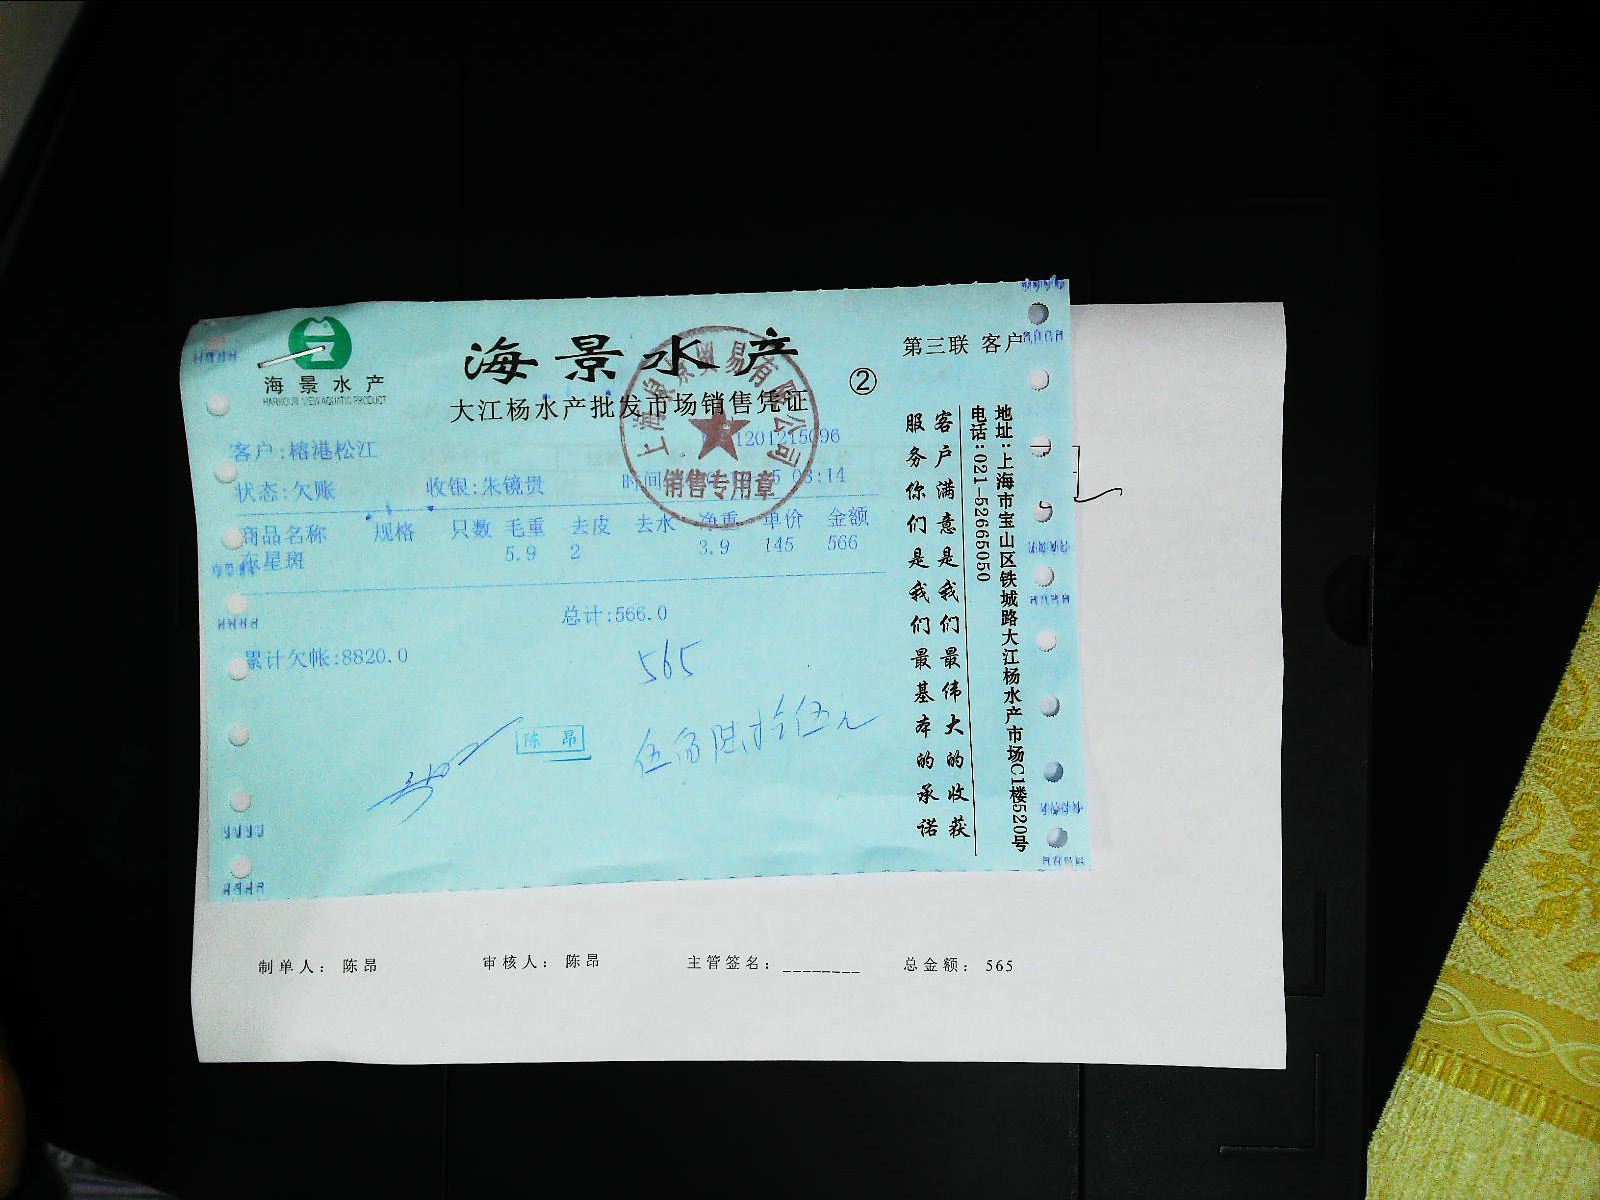 海景水产
HARBOUR VIEW AQUATIC PRODUCT
海景水产
大江杨水产批发市场销售凭证
②
第三联 客户
上海 贸易有限公司
销售专用章
1201215096
客户:榕港松江
状态:欠账 收银:朱镜贵 时间 03:14
商品名称 规格 只数 毛重 去皮 去水 净重 单价 金额
东星斑 5.9 2 3.9 145 566
总计:566.0
累计欠帐:8820.0
565
陈昂
伍佰陆拾伍元
客户满意是我们最伟大的收获
服务你们是我们最基本的承诺
地址:上海市宝山区铁城路大江杨水产市场C1楼520号
电话:021-52665050
制单人: 陈昂 审核人: 陈昂 主管签名:________ 总金额: 565